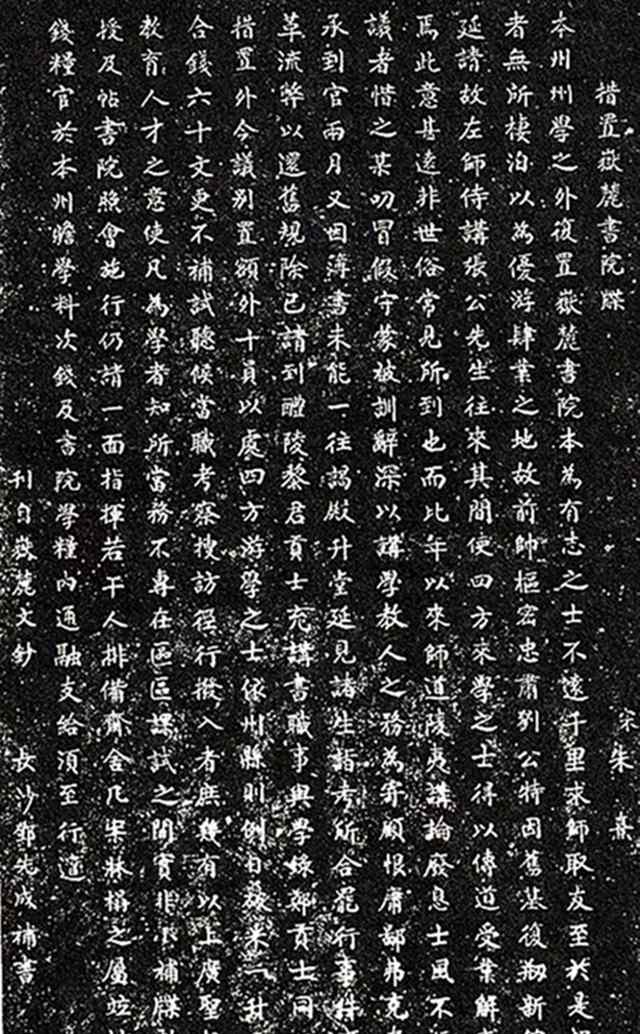 措置嶽麓書院牒
宋朱熹
本州州學之外復置嶽麓書院本為有志之士不遠千里求師取友至於是
者無所棲泊以為優游肄業之地故前帥樞宏忠肅劉公特因舊基復剏新
延請故左師侍講張公先生往來其間使四方來學之士得以傳道受業解
焉此意甚遠非世俗常見所到也而比年以來師道陵夷講論廢息士風不
議者惜之某叨冒假守蒙被訓辭深以講學教人之務為寄顧恨庸鄙弗克
承到官兩月又困簿書未能一往謁殿升堂延見諸生詣考所合罷行事件
革流弊以還舊規除已請到醴陵黎君貢士充講書職事與學錄鄭貢士同
措置外今議別置額外十員以處四方游學之士依州縣則例日破米一升
合錢六十文更不補試聽候當職考察搜訪徑行撥入者庶幾有以上廣聖
教育人才之意使凡為學者知所當務不專在區區課試之間實非小補牒
授及帖書院照會施行仍請一面指揮若干人排備齋舍几案床榻之屬並
錢糧官於本州贍學料次錢及書院學糧內通融支給須至行遣
刊自嶽麓文鈔
長沙鄭先成補書